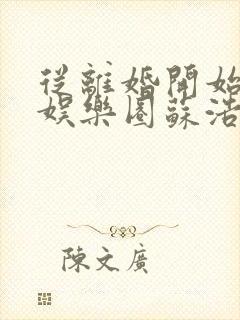 從離婚開始
娛樂圈蘇浩
陳文廣